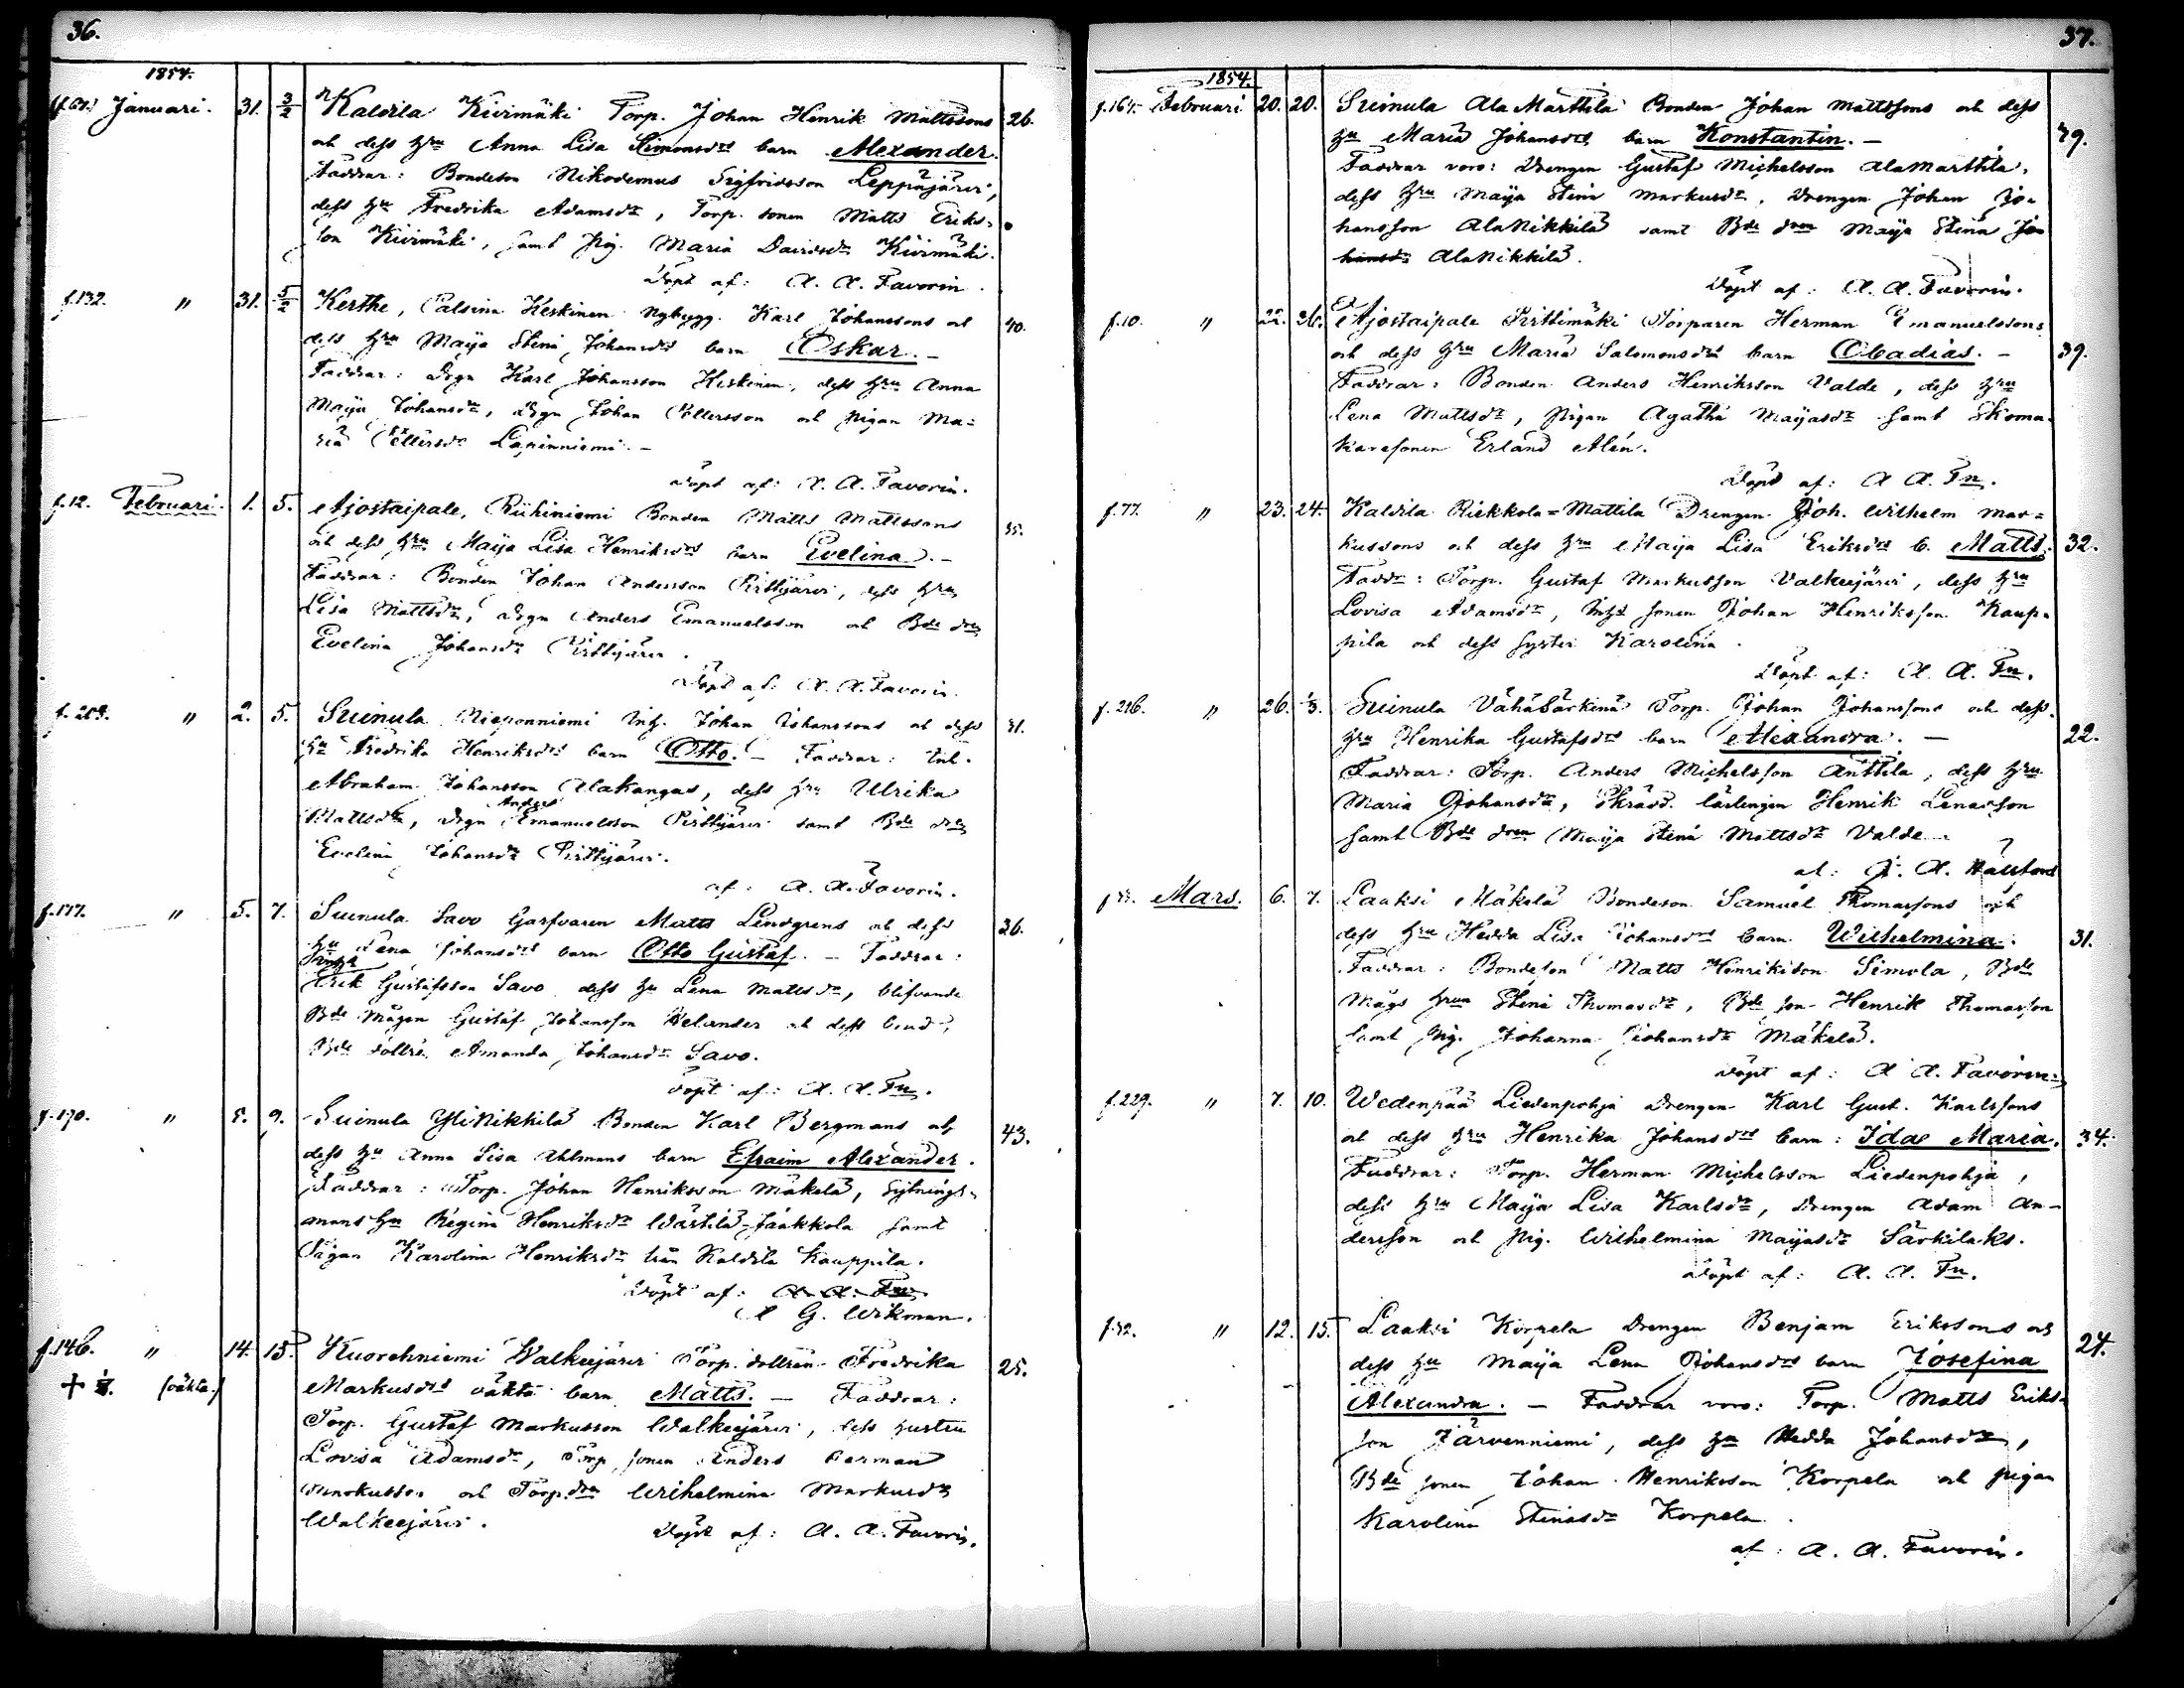 36.
1854.
Januari. 31. 3/2 Kaldila Kivimäki Torp. Johan Henrik Mattssons 26.
och dess Hru Anna Lisa Simonsdrs barn Alexander.
Faddrar: Bondeson Nikodemus Sigfridsson Leppäjärvi,
dess Hu Fredrika Adamsdr, Torp. sonen Matts Eriks-
son Kivimäki, samt Pig. Maria Davidsdr Kivimäki.
Döpt af: A. A. Favorin.
f.132. " 31. 5/2 Kerthe, Keskinen Nybygg. Karl Johanssons och 40.
dess Hru Maija Stina Johansdrs barn Oskar. –
Faddrar: Drgn Karl Johansson Keskinen, dess Hru Anna
Maija Johansdr, Drgn Johan Pettersson och pigan Ma=
ria Pettersdr Lapinniemi. –
Döpt af: A. A. Favorin.
f.12. Februari. 1. 5. Ajostaipale, Riihiniemi Bonden Matts Mattssons 35.
och dess Hru Maija Lisa Henriksdrs barn Evelina. –
Faddrar: Bonden Johan Andersson Pirttijärvi, dess Hru
Lisa Mattsdr, Drgn Anders Emanuelsson och Bde drn
Evelina Johansdr Pirttijärvi.
Döpt af: A. A. Favorin.
" 2. 5. Suinula Nieponniemi Inh. Johan Johanssons och dess 31.
Hu Fredrika Henriksdrs barn Otto. – Faddrar: Inh.
Abraham Johansson Alakangas, dess Hru Ulrika
Anders
Mattsdr, Drgn Emanuelsson Pirttijärvi samt Bde drn
Evelina Johansdr Pirttijärvi.
af: A. A. Favorin.
f.177. " 5. 7. Suinula Savo Garfvaren Matts Lindgrens och dess 26.
Hu Lena Johansdrs barn Otto Gustaf. – Faddrar:
Erik Gustafsson Savo dess Hu Lena Mattsdr, blifvande
Bde mågen Gustaf Johansson Velander och dess brud,
Bde dottrn Amanda Johansdr Savo.
Döpt af: A. A. Fn.
f.170. " 5. 9. Suinula YliNikkilä Bonden Karl Bergmans och 43.
dess Hu Anna Lisa Ahlmans barn Efraim Alexander.
Faddrar: Torp. Johan Henriksson Mäkelä, Sytnings-
mans Hu Regina Henriksdr Wärtilä-Jaakkola samt
Pigan Karolina Henriksdr från Kaldila Kauppila.
Döpt af: A. A. Fn.
A G. Wikman.
f.146. " 14. 15. Kuorehniemi Walkeejärvi Torp. dottren Fredrika 25.
(oäkta.) Markusdrs oäkta barn Matts. – Faddrar:
Torp. Gustaf Markusson Walkeejärvi, dess hustru
Lovisa Adamsdr, Torp sonen Anders Herman
Markusson och Torp. drn Wilhelmina Markusdr
Walkeejärvi.
Döpt af: A. A. Favorin.
37.
1854.
f.164. Februari 20. 20. Suinula Ala Marttila Bonden Johan Mattssons och dess
Hu Maria Johansdrs barn Konstantin. – 29.
Faddrar voro: Drengen Gustaf Michelsson AlaMarttila,
dess Hru Maija Stina Markusdr, Drengen Johan Jo-
hansson AlaNikkilä samt Bde drn Maija Stina Jo
hansdr AlaNikkilä.
Döpt af: A. A. Favorin.
f.10. " 22. 26. Ajostaipale Pirttimäki Torparen Herman Emanuelssons
och dess Hru Maria Salomonsdrs barn Obadias. – 39.
Faddrar: Bonden Anders Henriksson Valde, dess Hru
Lena Mattsdr, pigan Agatha Maijasdr samt Skoma-
karesonen Erland Alén.
Döpt af: A A. Fn.
f.77. " 23. 24. Kaldila Riekkola=Mattila Drengen Joh. Wilhelm Mar=
kussons och dess Hru Maija Lisa Eriksdrs b. Matts. 32.
Faddr: Torp. Gustaf Markusson Valkeejärvi, dess Hru
Lovisa Adamsdr, Inhs sonen Johan Henriksson Kaup-
pila och dess syster Karolina.
Döpt af: A. A. Fn.
f.216. " 26. 1/3. Suinula VähäSärkiná Torp. Johan Johanssons och dess
Hru Henrika Gustafsdrs barn Alexandra. – 22.
Faddrar: Torp. Anders Michelsson Anttila, dess Hru
Maria Johansdr, Skrädd. lärlingen Henrik Lenasson
samt Bde drn Maija Stina Mattsdr Valde.
af: J. A. Hällfors
Mars. 6. 7. Laaksi Mäkelä Bondeson Samuel Thomassons och
dess Hru Hedda Lisa Johansdrs barn Wilhelmina. 31.
Faddrar: Bondeson Matts Henriksson Simola, Bde
mågs Hrun Stina Thomasdr, Bde son Henrik Thomasson
samt Pig. Johanna Johansdr Mäkelä.
Döpt af: A A. Favorin.
f.229. " 7. 10. Wedenpää Liedenpohja Drengen Karl Gust. Karlssons
och dess Hru Henrika Johansdrs barn: Ida Maria. 34.
Faddrar: Torp. Herman Michelsson Liedenpohja,
dess Hru Maija Lisa Karlsdr, Drengen Adam An-
dersson och Pig. Wilhelmina Maijasdr Särkilaks.
Döpt af: A. A. Fn.
f.32. " 12. 15. Laaksi Korpela Drengen Benjam Erikssons och
dess Hu Maija Lena Johansdrs barn Josefina 24.
Alexandra. – Faddrar voro: Torp. Matts Eriks-
son Järvenniemi, dess Hu Hedda Johansdr,
Bde sonen Johan Henriksson Korpela och pigan
Karolina Stinasdr Korpela.
af: A. A. Favorin.